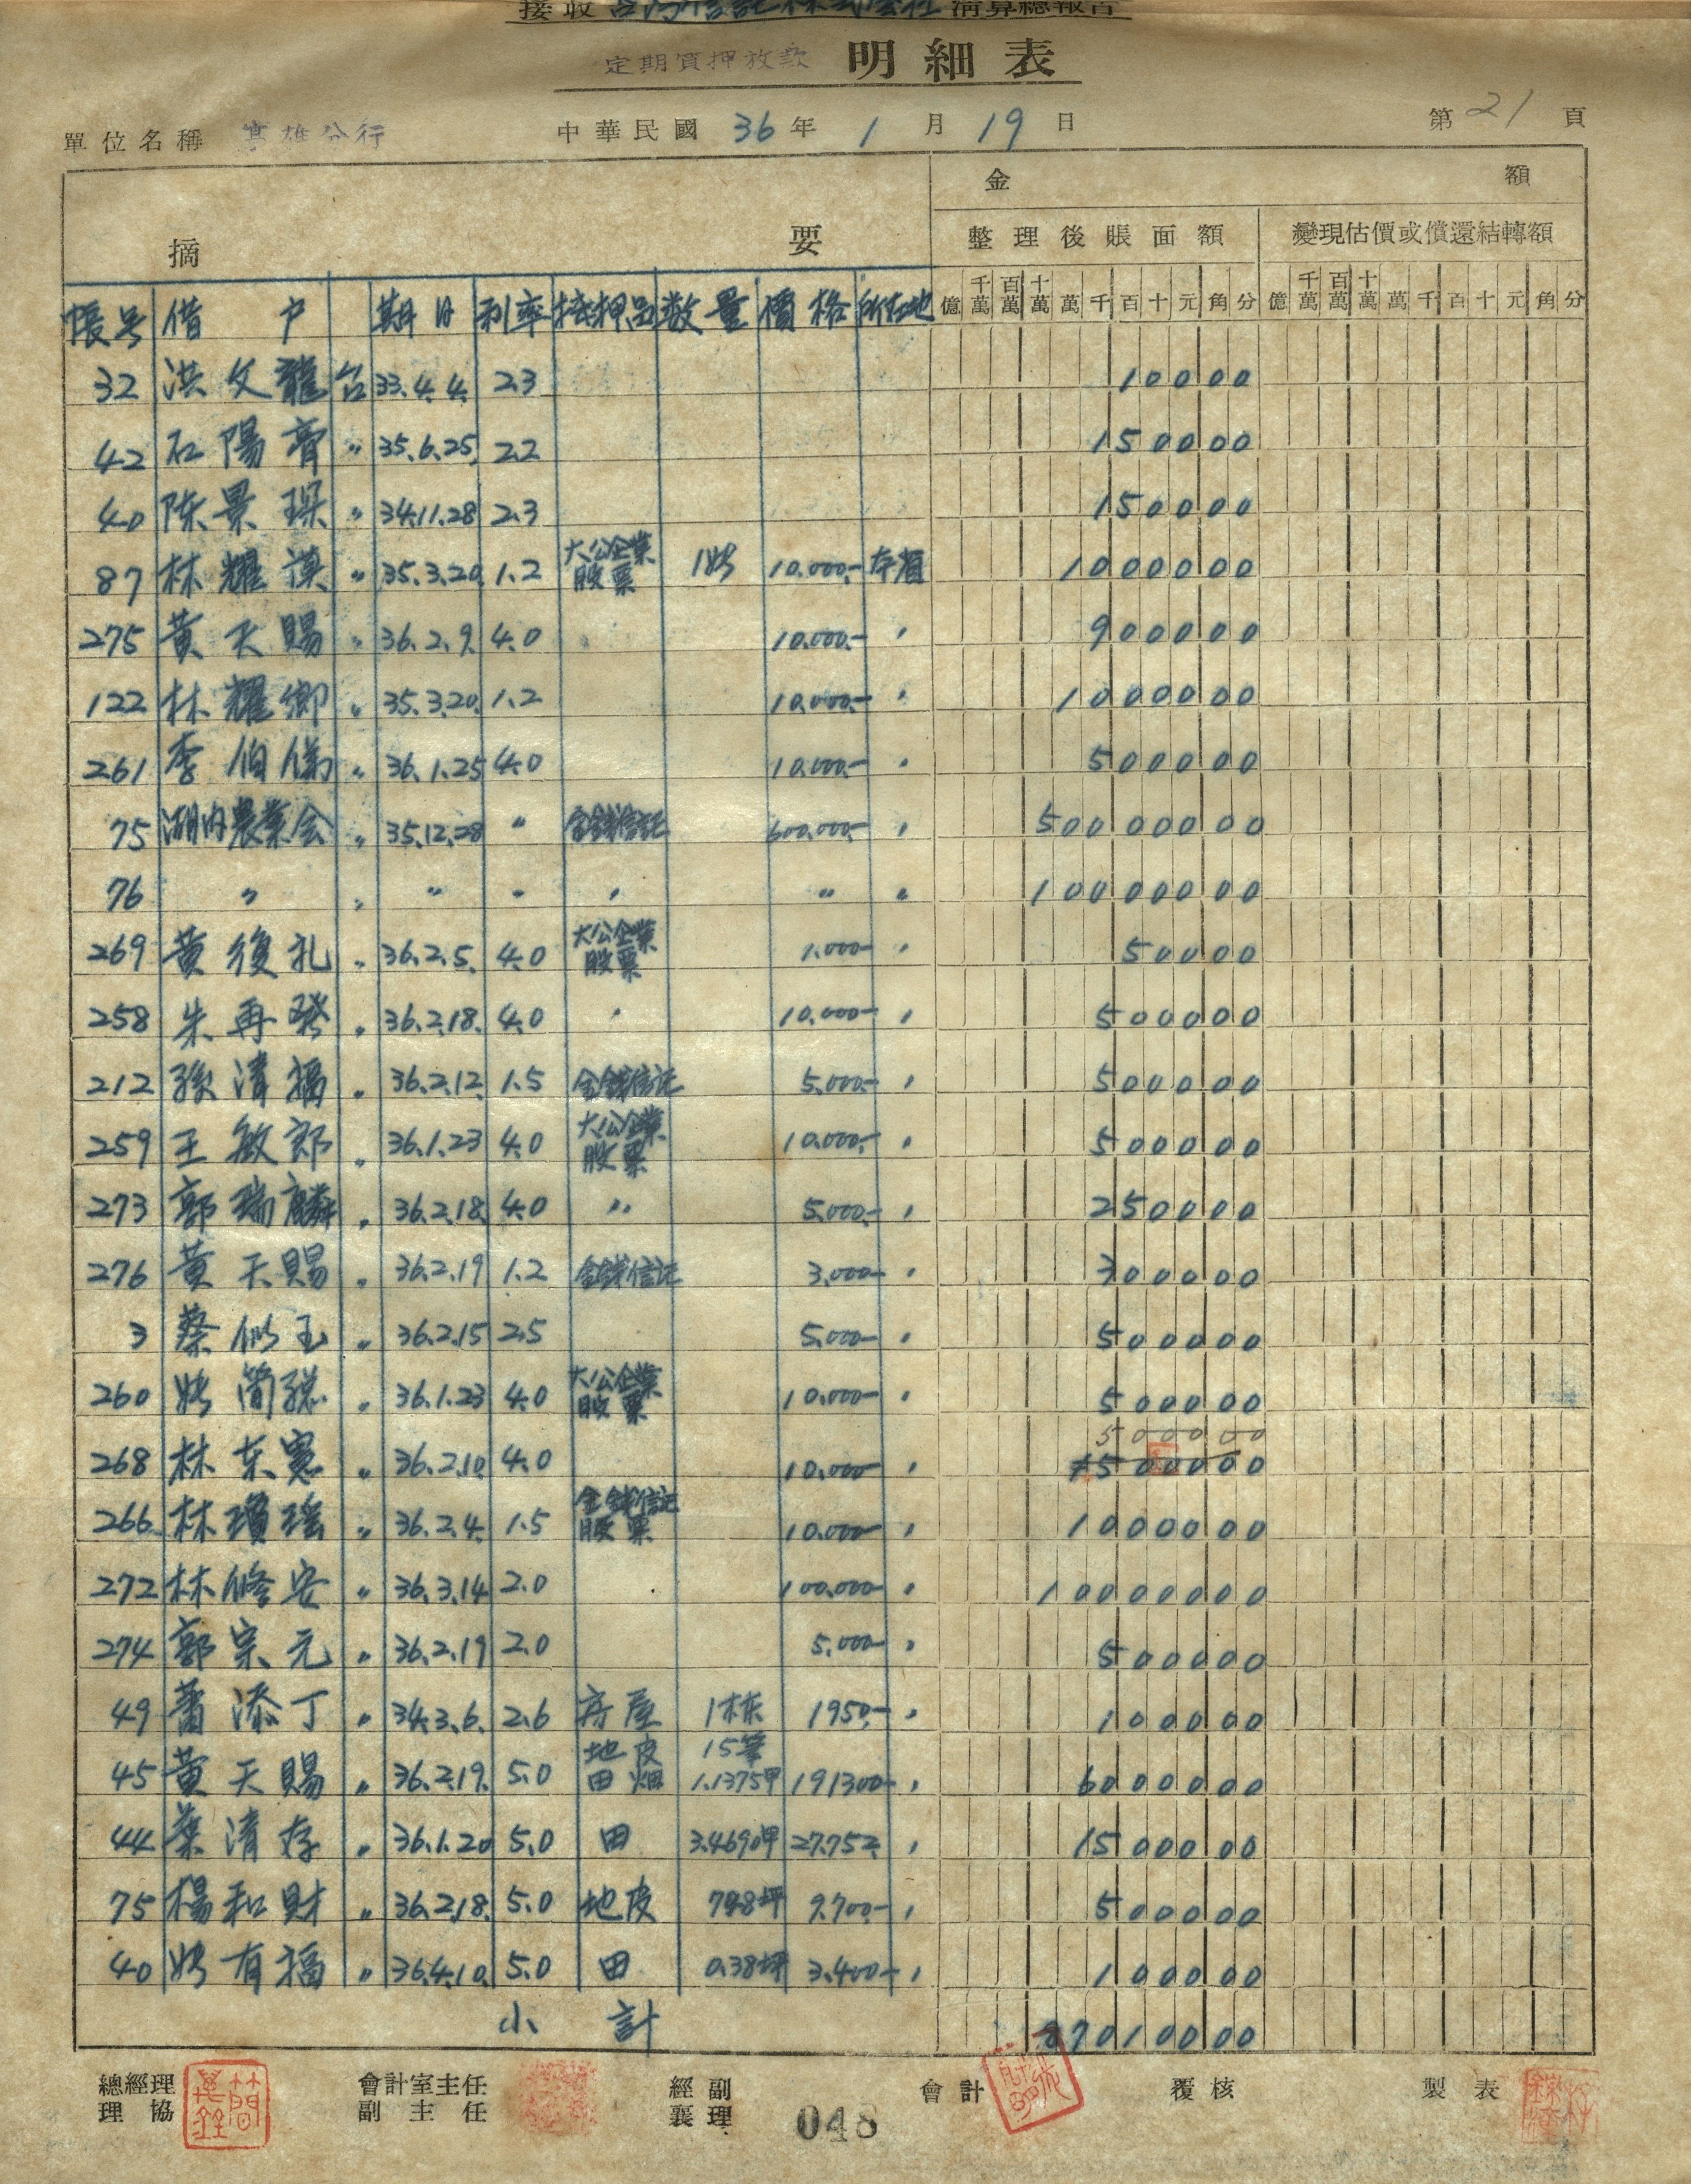 接收台灣信託株式会社清算總報告
定期質押放款 明細表
單位名稱 高雄分行 中華民國 36 年 1 月 19 日 第 21 頁
摘 要 金 額
整理後賬面額 變現估價或償還結轉額
億 千萬 百萬 十萬 萬 千 百 十 元 角 分 億 千萬 百萬 十萬 萬 千 百 十 元 角 分
帳号 借戶 期日 利率 抵押品 数量 價格 所在地
32 洪文龍 台 33.4.4. 2.3 10000
42 石陽膏 〃 35.6.25. 2.2 150000
40 陈景琛 〃 34.11.28 2.3 150000
87 林耀漢 〃 35.3.20. 1.2 大公企業股票 10.000.- 本省 1000000
275 黃天賜 〃 36.2.9. 4.0 10.000.- 〃 900000
122 林耀鄉 〃 35.3.20. 1.2 10.000.- 〃 1000000
261 李伯儀 〃 36.1.25 4.0 10.000.- 〃 500000
75 湖內農業会 〃 35.12.28 〃 金錢信託 600.000.- 〃 50000000
76 〃 〃 〃 〃 〃 〃 〃 10000000
269 黃復礼 〃 36.2.5. 4.0 大公企業股票 1.000- 〃 50000
258 朱再發 〃 36.2.18. 4.0 〃 10.000- 〃 500000
212 孫清福 〃 36.2.12. 1.5 金錢信託 5.000.- 〃 500000
259 王敏郎 〃 36.1.23 4.0 大公企業股票 10.000.- 〃 500000
273 郭瑞麟 〃 36.2.18. 4.0 〃 5.000.- 〃 250000
276 黃天賜 〃 36.2.19 1.2 金錢信託 3.000- 〃 300000
3 蔡似玉 〃 36.2.15 2.5 5.000- 〃 500000
260 簡聪 〃 36.1.23 4.0 大公企業股票 10.000- 〃 500000
500000
268 林东憲 〃 36.2.10. 4.0 10.000- 〃 1500000
266 林瓊瑤 〃 36.2.4. 1.5 金錢信託股票 10.000- 〃 1000000
272 林修安 〃 36.3.14 2.0 100.000- 〃 10000000
274 郭宗元 〃 36.2.19 2.0 5.000- 〃 500000
49 蕭添丁 〃 34.3.6. 2.6 房屋 1栋 1950.- 〃 100000
45 黃天賜 〃 36.2.19. 5.0 地皮田畑 15筆 1.1375甲 191300- 〃 6000000
44 葉清存 〃 36.1.20 5.0 田 3.4690甲 27.752. 〃 1500000
75 楊和財 〃 36.2.18. 5.0 地皮 798坪 9.700.- 〃 500000
40 有福 〃 36.4.10. 5.0 田 0.38坪 3.400- 〃 100000
小計 87010000
總經理 協理 會計室主任 副主任 經副襄理 會計 覆核 製表
048